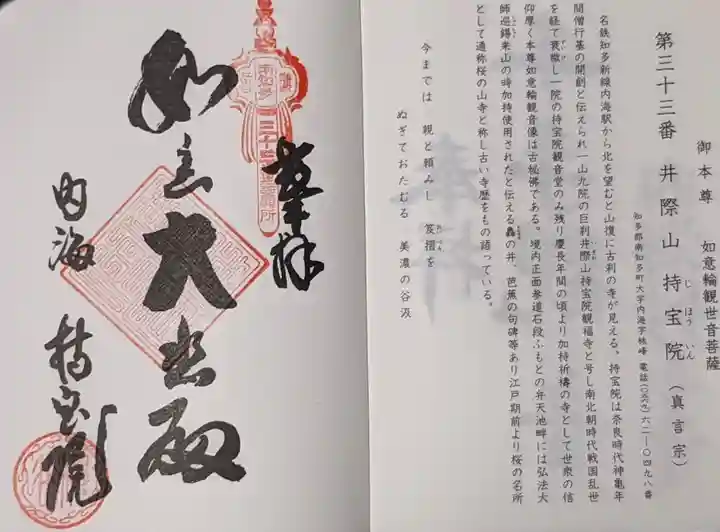 御本尊 如意輪観世音菩薩
第三十三番 井際山 持宝院(真言宗)
じほういん
知多郡南知多町大字内海字林峰 電話(〇五六九)六二―〇四九八番
名鉄知多新線内海駅から北を望むと山腹に古刹の寺が見える。持宝院は奈良時代神亀年
間僧行基の開創と伝えられ一山九院の巨刹井際山持宝院観福寺と号し南北朝時代戦国乱世
を経て衰徴し一院の持宝院観音堂のみ残り慶長年間の頃より加持祈祷の寺として世衆の信
仰厚く本尊如意輪観音像は古秘佛である。境内正面参道石段ふもとの弁天池畔には弘法大
師巡錫来山の時加持使用されたと伝えるの井、芭蕉の句碑等あり江戸期前より桜の名所
として通称桜の山寺と称し古い寺歴をもの語っている。
今までは 親と頼みし 笈摺を
ぬぎておたむる 美濃の谷汲
奉拝
如意大悲殿
内海 持宝院